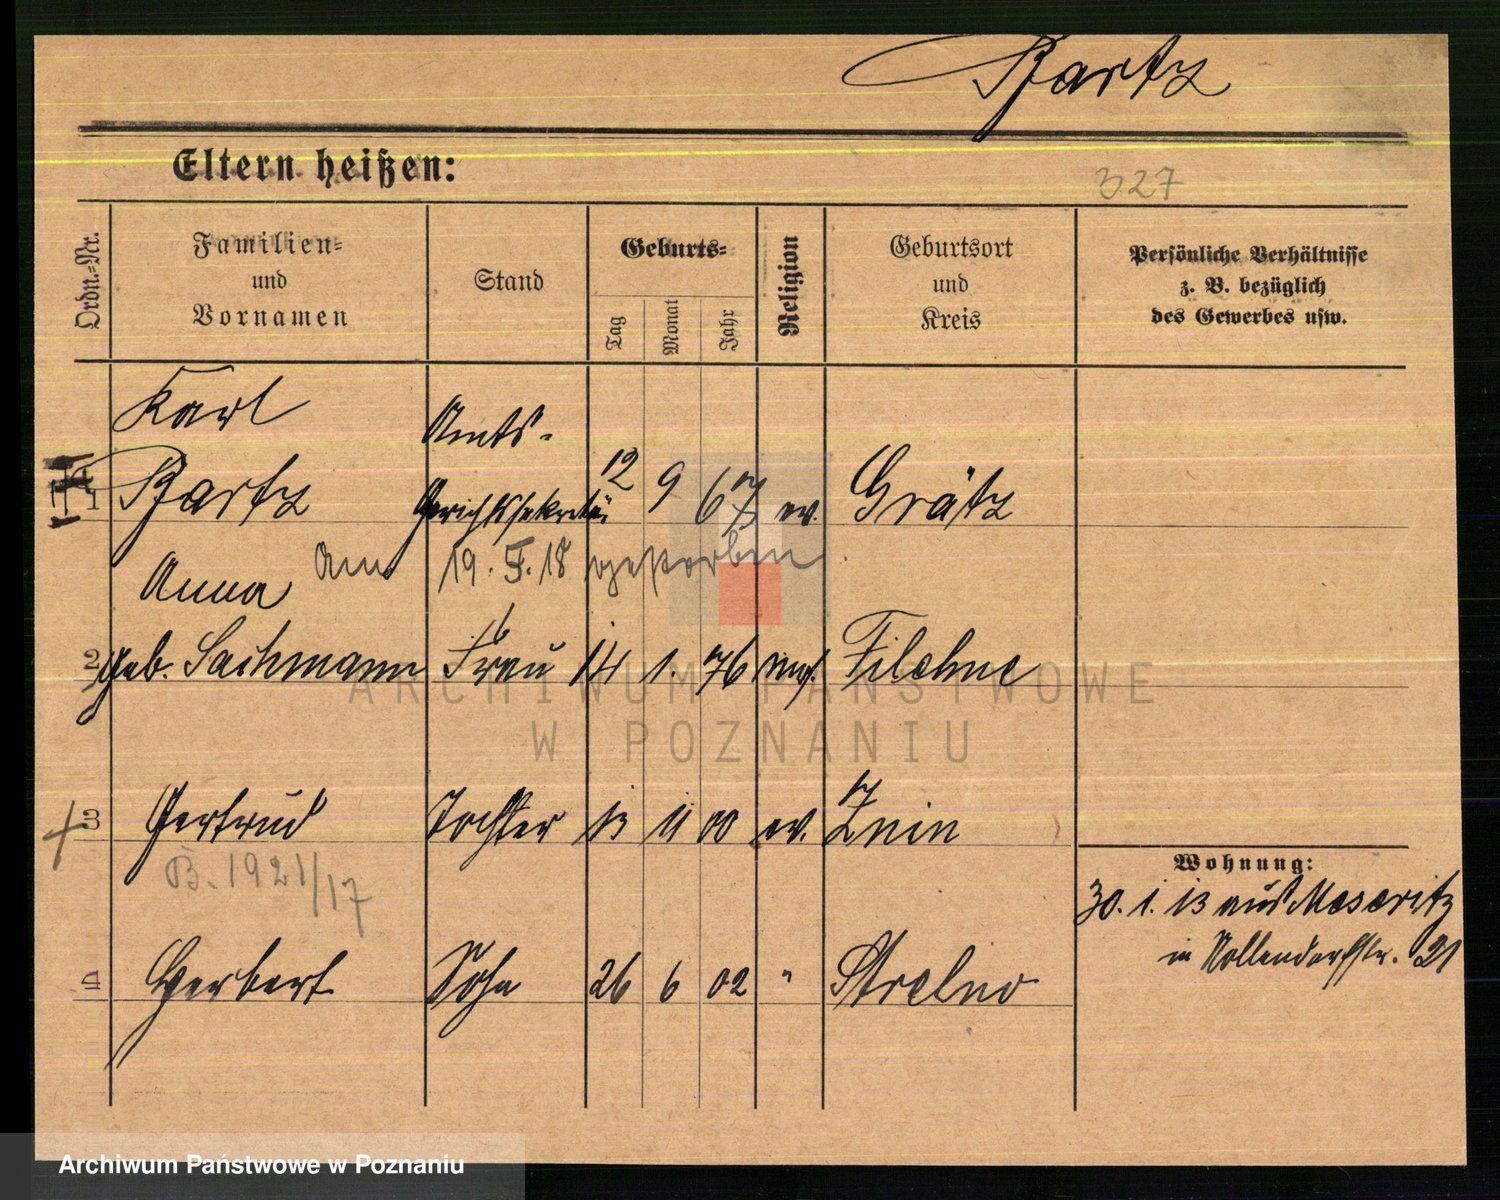 Bartz
Eltern heißen:
327
Ordn.-Nr.
Familien-
und
Vornamen
Stand
Geburts-
Tag
Monat
Jahr
Religion
Geburtsort
und
Kreis
Persönliche Verhältnisse
z. B. bezüglich
des Gewerbes usw.
Karl
Amts-
1 Bartz Gerichtssekretär 12 9 67 ev. Grätz
am 19. 5. 18 gestorben
Anna
2 geb. Sachmann Frau 14 1. 76 Filehne
3 Gertrud Tochter 13 11 00 ev. Znin
B. 1921/17
Wohnung:
30. 1. 13 aus Meseritz
in Nollendorfstr. 21
4 Herbert Sohn 26 6 02 " Strelno
ARCHIWUM PAŃSTWOWE
W POZNANIU
Archiwum Państwowe w Poznaniu